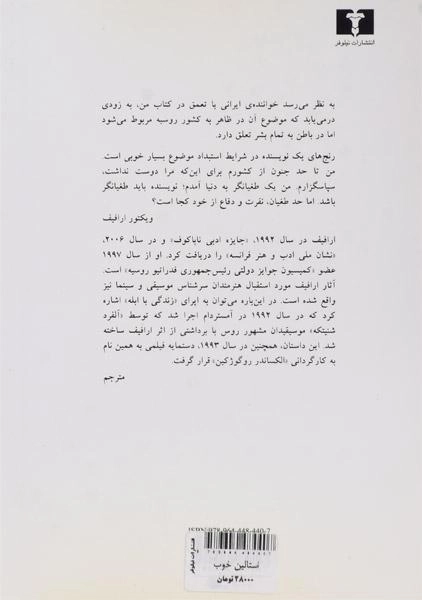 انتشارات نیلوفر
به نظر می‌رسد خواننده‌ی ایرانی با تعمق در کتاب من، به زودی
درمی‌یابد که موضوع آن در ظاهر به کشور روسیه مربوط می‌شود
اما در باطن به تمام بشر تعلق دارد.
رنج‌های یک نویسنده در شرایط استبداد موضوع بسیار خوبی است.
من تا حد جنون از کشورم برای این‌که مرا دوست نداشت،
سپاسگزارم. من یک طغیانگر به دنیا آمدم؛ نویسنده باید طغیانگر
باشد. اما حد طغیان، نفرت و دفاع از خود کجا است؟
ویکتور ارافیف
ارافیف در سال ۱۹۹۲، «جایزه ادبی ناباکوف» و در سال ۲۰۰۶،
«نشان ملی ادب و هنر فرانسه» را دریافت کرد. او از سال ۱۹۹۷
عضو «کمیسیون جوایز دولتی رئیس‌جمهوری فدراتیو روسیه» است.
آثار ارافیف مورد استقبال هنرمندان سرشناس موسیقی و سینما نیز
واقع شده است. در این‌باره می‌توان به اپرای «زندگی با ابله» اشاره
کرد که در سال ۱۹۹۲ در آمستردام اجرا شد که توسط «آلفرد
شنیتکه» موسیقیدان مشهور روس با برداشتی از اثر ارافیف ساخته
شد. این داستان، همچنین در سال ۱۹۹۳، دستمایه فیلمی به همین نام
به کارگردانی «الکساندر روگوژکین» قرار گرفت.
مترجم
ISBN:978-964-448-440-7
انتشارات نیلوفر
استالین خوب
۲۸۰۰۰ تومان